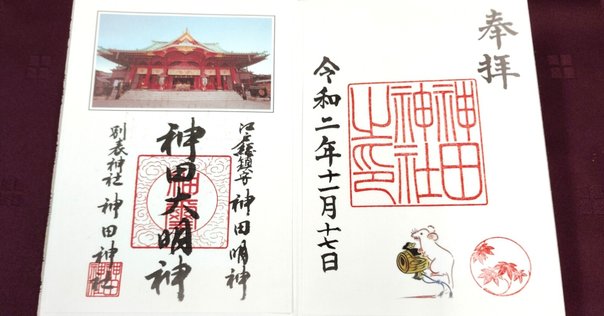 奉拝
神田
神社
之印
令和二年十一月十七日
江戸總鎮守 神田明神
神田大明神
別表神社 神田神社
神田
神社